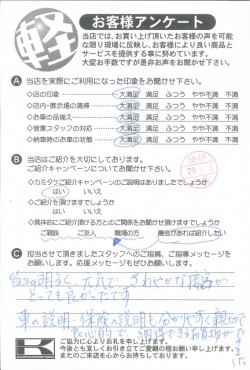 軽 お客様アンケート
当店では、お買い上げ頂いたお客様の声を可能
な限り現場に反映し、お客様により良い商品と
サービスを提供する事に努めています。
大変お手数ですが是非お声をお聞かせ下さい。
A 当店を実際にご利用になった印象をお聞かせ下さい。
◇店の印象 大満足 満足 ふつう やや不満 不満
◇店内・展示場の清掃 大満足 満足 ふつう やや不満 不満
◇お車の品揃え 大満足 満足 ふつう やや不満 不満
◇営業スタッフの対応 大満足 満足 ふつう やや不満 不満
◇納車時のお車の状態 大満足 満足 ふつう やや不満 不満
B 当店はご紹介を大切にしております。
ご紹介キャンペーンについてお聞かせ下さい。
◇カミタケご紹介キャンペーンのご説明はありましたでしょうか
はい いいえ
◇ご紹介を頂けますでしょうか
はい いいえ
◇具体的にご紹介頂ける方とのご関係をお聞かせ頂けますでしょうか
ご親族 ご友人 職場の方 機会があれば紹介したい
C 担当させて頂きましたスタッフへのご指摘、ご指導メッセージを
お願いします。応援メッセージもぜひお願いします。
とっても良かったです
車の説明・保険の説明も分かりやすく親切で
良心的で、納得できるお買物ができ
ました
ご協力に心よりお礼を申し上げます。
今後とも宜しくお引き立てご愛顧の程お願い申し上げます。
またのご来店を心からお待ちしております。